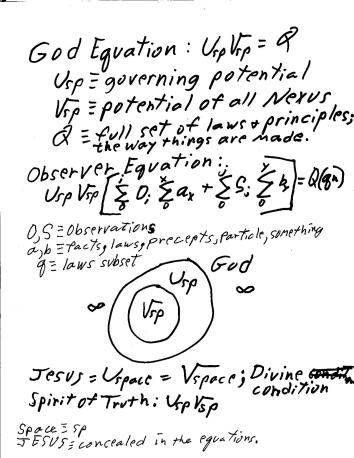 God Equation : Usp Vsp = Q
Usp ≡ governing potential
Vsp ≡ potential of all Nexus
Q ≡ full set of laws & principles;
the way things are made.
Observer Equation:
Usp Vsp [ Σ Oi Σ ax + Σ Sj Σ b ] = Q(qn)
O,S ≡ Observations
a,b ≡ facts, laws, precepts, particle, something
q ≡ laws subset
God
Usp
∞ Vsp ∞
Jesus = Uspace = Vspace; Divine
condition
Spirit of Truth: Usp Vsp
Space ≡ sp
JESUS ≡ concealed in the equations.